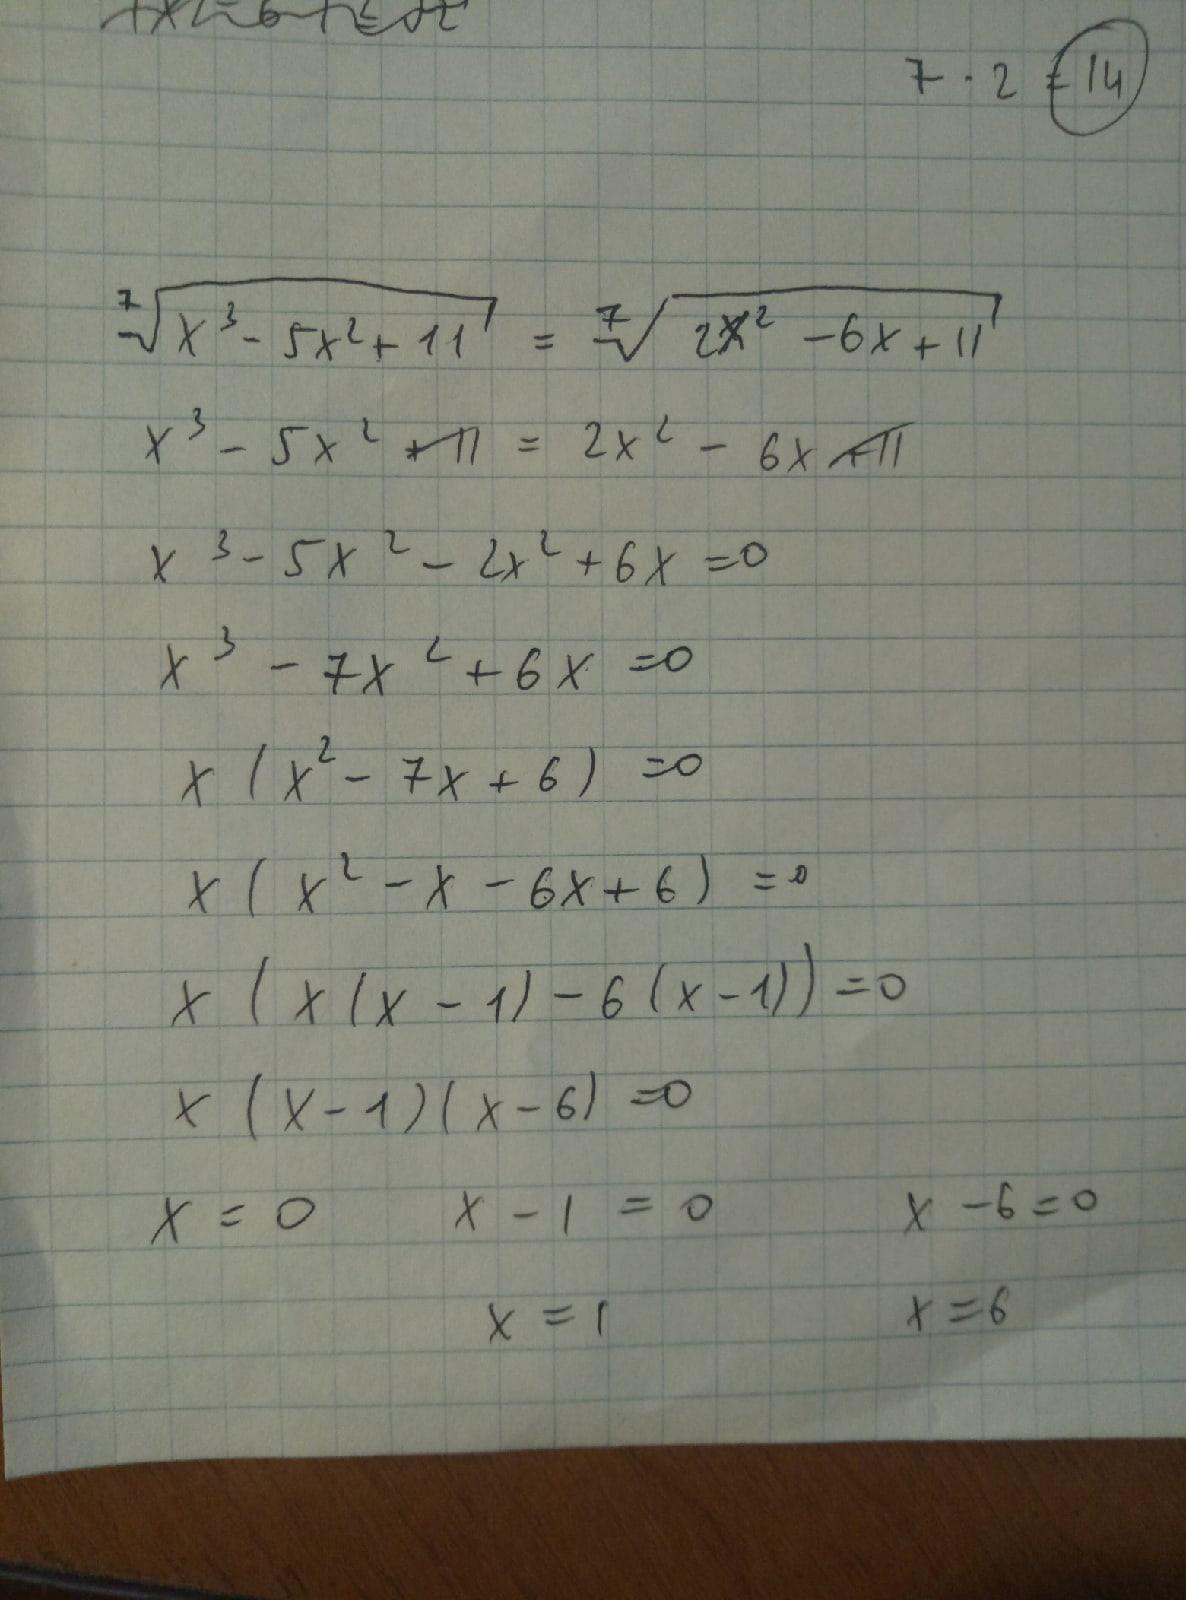 7 · 2 = 14
⁷√(x³ - 5x² + 11) = ⁷√(2x² - 6x + 11)
x³ - 5x² + 11 = 2x² - 6x + 11
x³ - 5x² - 2x² + 6x = 0
x³ - 7x² + 6x = 0
x (x² - 7x + 6) = 0
x (x² - x - 6x + 6) = 0
x (x (x - 1) - 6 (x - 1)) = 0
x (x - 1) (x - 6) = 0
x = 0 x - 1 = 0 x - 6 = 0
x = 1 x = 6